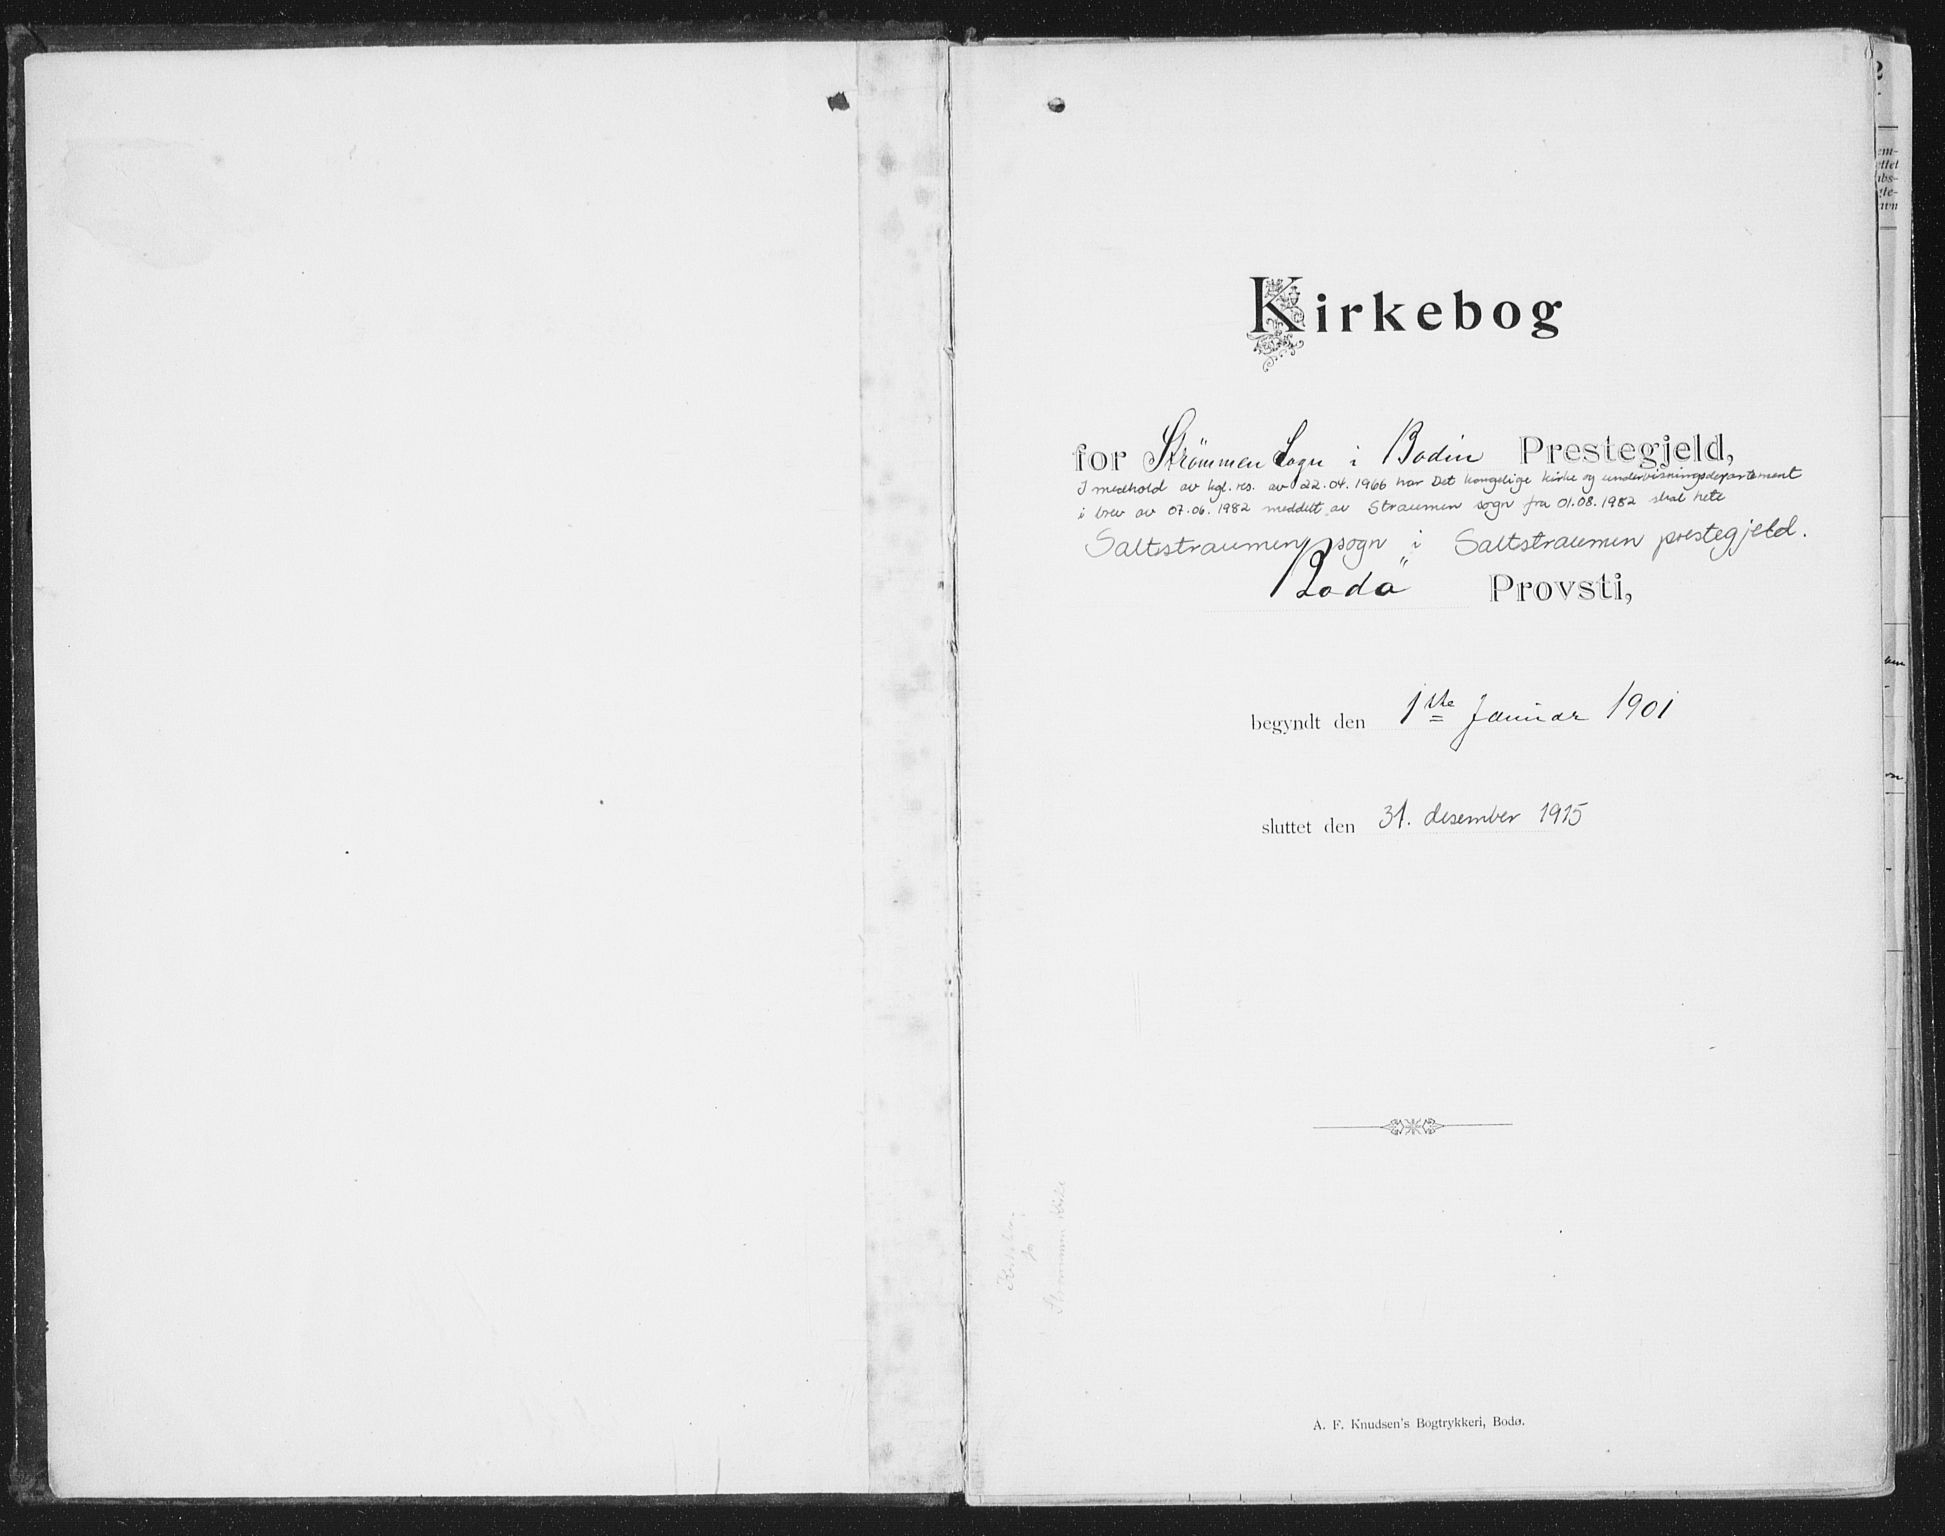 Kirkebog
for Strömmen Sogn i Bodin Prestegjeld,
I medhold av kgl. res. av 22.04.1966 har Det kongelige kirke og undervisningsdepartement
i brev av 07.06.1982 meddelt av Straumen sogn fra 01.08.1982 skal hete
Saltstraumen sogn i Saltstraumen prestegjeld.
Bodö Provsti,
begyndt den 1ste Januar 1901
sluttet den 31. desember 1915
Kirkebog
for
Strømmen Kirke
A. F. Knudsen's Bogtrykkeri, Bodø.